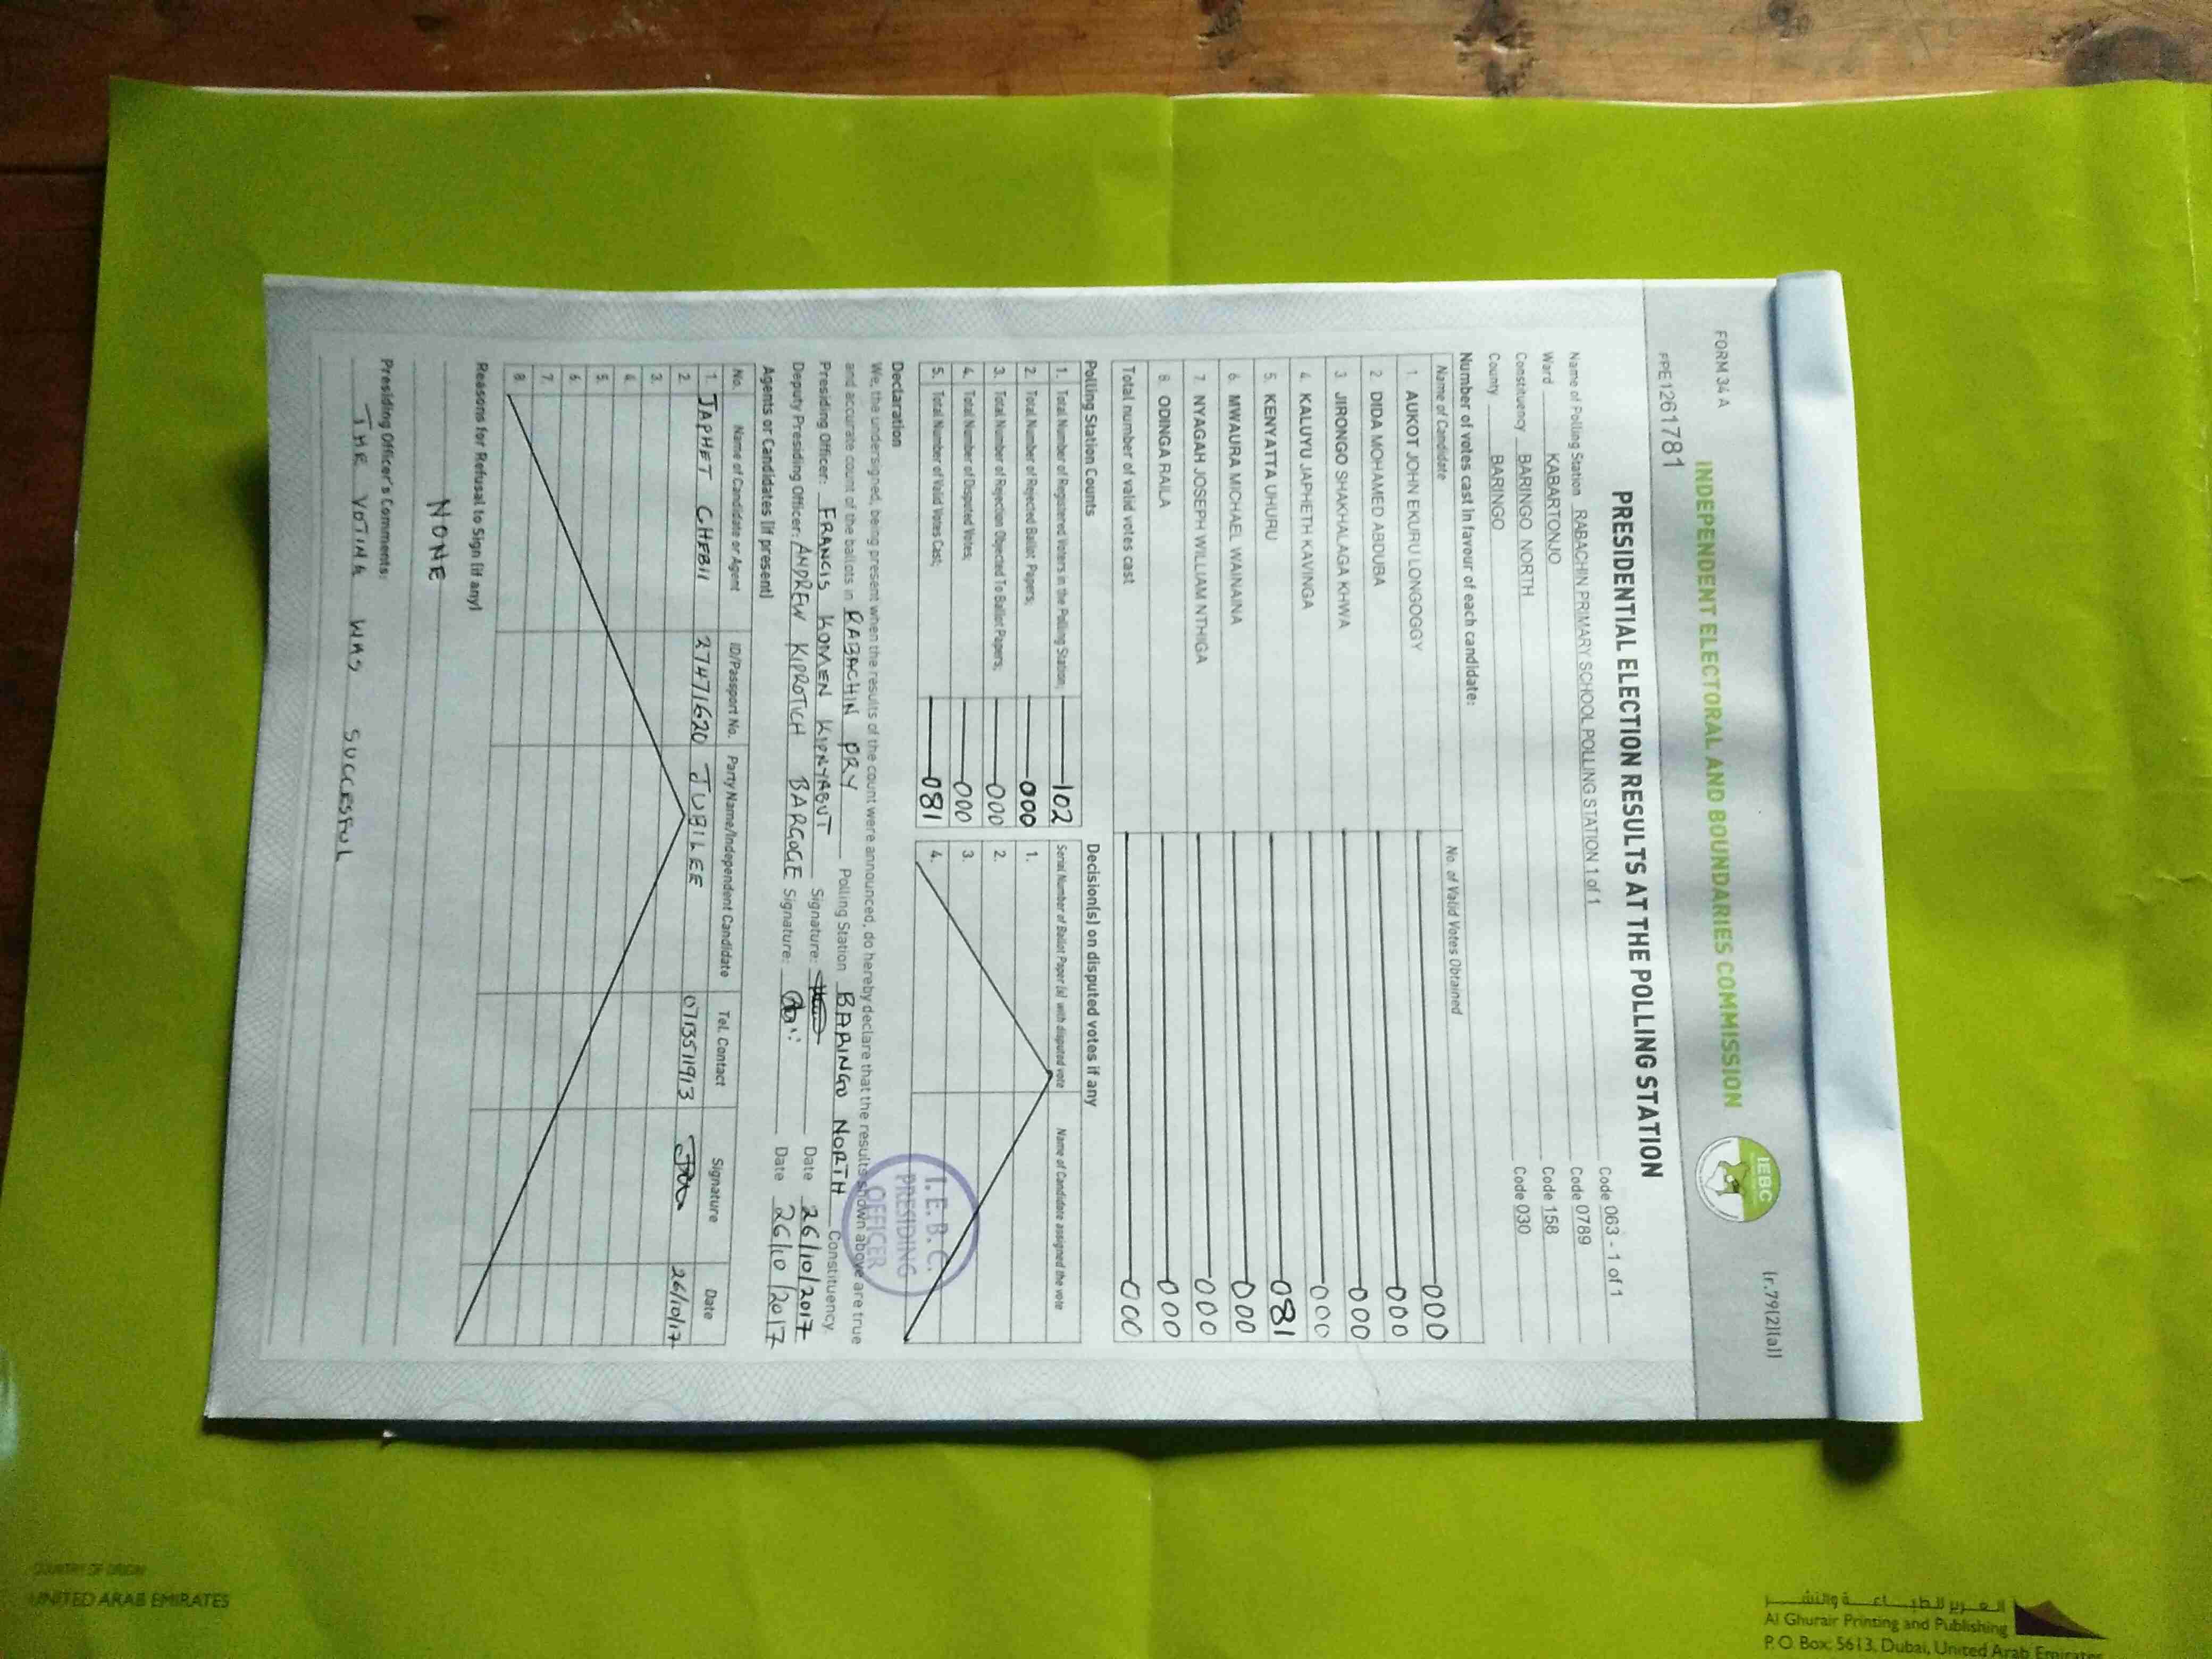 FORM 34 A
(r.79(2)(a))
INDEPENDENT ELECTORAL AND BOUNDARIES COMMISSION
IEBC
PPE1261781
PRESIDENTIAL ELECTION RESULTS AT THE POLLING STATION
Name of Polling Station RABACHIN PRIMARY SCHOOL POLLING STATION 1 of 1 Code 063 - 1 of 1
Ward KABARTONJO Code 0789
Constituency BARINGO NORTH Code 158
County BARINGO Code 030
Number of votes cast in favour of each candidate:
Name of Candidate No. of Valid Votes Obtained
1. AUKOT JOHN EKURU LONGOGGY 000
2. DIDA MOHAMED ABDUBA 000
3. JIRONGO SHAKHALAGA KHWA 000
4. KALUYU JAPHETH KAVINGA 000
5. KENYATTA UHURU 081
6. MWAURA MICHAEL WAINAINA 000
7. NYAGAH JOSEPH WILLIAM NTHIGA 000
8. ODINGA RAILA 000
Total number of valid votes cast 000
Polling Station Counts Decision(s) on disputed votes if any
1. Total Number of Registered Voters in the Polling Station; 102 Serial Number of Ballot Paper (s) with disputed vote Name of Candidate assigned the vote
2. Total Number of Rejected Ballot Papers; 000 1.
3. Total Number of Rejection Objected To Ballot Papers; 000 2.
4. Total Number of Disputed Votes; 000 3.
5. Total Number of Valid Votes Cast; 081 4.
I.E.B.C.
PRESIDING
OFFICER
Declaration
We, the undersigned, being present when the results of the count were announced, do hereby declare that the results shown above are true
and accurate count of the ballots in RABACHIN PRY Polling Station BARINGO NORTH Constituency.
Presiding Officer: FRANCIS KOMEN KIPNYABUT Signature: Date 26/10/2017
Deputy Presiding Officer: ANDREW KIPROTICH BARGOGE Signature: Date 26/10/2017
Agents or Candidates (if present)
No. Name of Candidate or Agent ID/Passport No. Party Name/Independent Candidate Tel. Contact Signature Date
1. JAPHET CHEBII 27471620 JUBILEE 0713511913 26/10/17
2.
3.
4.
5.
6.
7.
8.
Reasons for Refusal to Sign (if any)
NONE
Presiding Officer's Comments:
THE VOTING WAS SUCCESFUL
COUNTRY OF ORIGIN
UNITED ARAB EMIRATES
Al Ghurair Printing and Publishing
P.O. Box: 5613, Dubai, United Arab Emirates